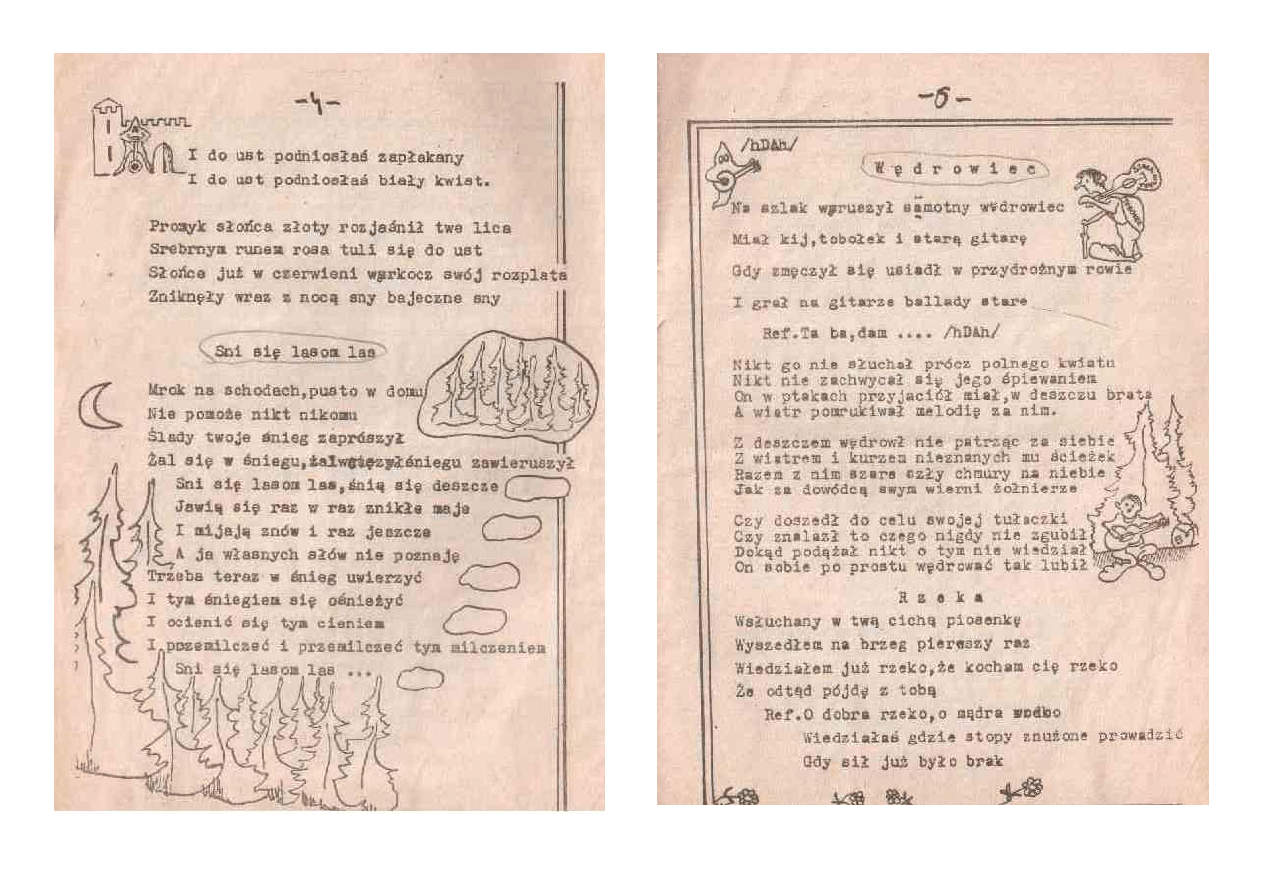 -4-
I do ust podniosłaś zapłakany
I do ust podniosłaś biały kwiat.
Promyk słońca złoty rozjaśnił twe lica
Srebrnym runem rosa tuli się do ust
Słońce już w czerwieni warkocz swój rozplata
Zniknęły wraz z nocą sny bajeczne sny
Sni się lasom las
Mrok na schodach,pusto w domu
Nie pomoże nikt nikomu
Ślady twoje śnieg zaprószył
Żal się w śniegu, śniegu zawieruszył
Sni się lasom las,śnią się deszcze
Jawią się raz w raz znikłe maje
I mijają znów i raz jeszcze
A ja własnych słów nie poznaję
Trzeba teraz w śnieg uwierzyć
I tym śniegiem się ośnieżyć
I ocienić się tym cieniem
I pozemilczeć i przemilczeć tym milczeniem
Sni się lasom las ...
-5-
/hDAh/
W ę d r o w i e c
Na szlak wyruszył samotny wędrowiec
Miał kij,tobołek i starą gitarę
Gdy zmęczył się usiadł w przydrożnym rowie
I grał na gitarze ballady stare
Ref.Ta ba,dam .... /hDAh/
Nikt go nie słuchał prócz polnego kwiatu
Nikt nie zachwycał się jego śpiewaniem
On w ptakach przyjaciół miał,w deszczu brata
A wiatr pomrukiwał melodię za nim.
Z deszczem wędrowł nie patrząc za siebie
Z wiatrem i kurzem nieznanych mu ścieżek
Razem z nim szare szły chmury na niebie
Jak za dowódcą swym wierni żołnierze
Czy doszedł do celu swojej tułaczki
Czy znalazł to czego nigdy nie zgubił
Dokąd podążał nikt o tym nie wiedział
On sobie po prostu wędrować tak lubił
R z e k a
Wsłuchany w twą cichą piosenkę
Wyszedłem na brzeg pierwszy raz
Wiedziałem już rzeko,że kocham cię rzeko
Że odtąd pójdę z tobą
Ref.O dobra rzeko,o mądra wodo
Wiedziałaś gdzie stopy znużone prowadzić
Gdy sił już było brak